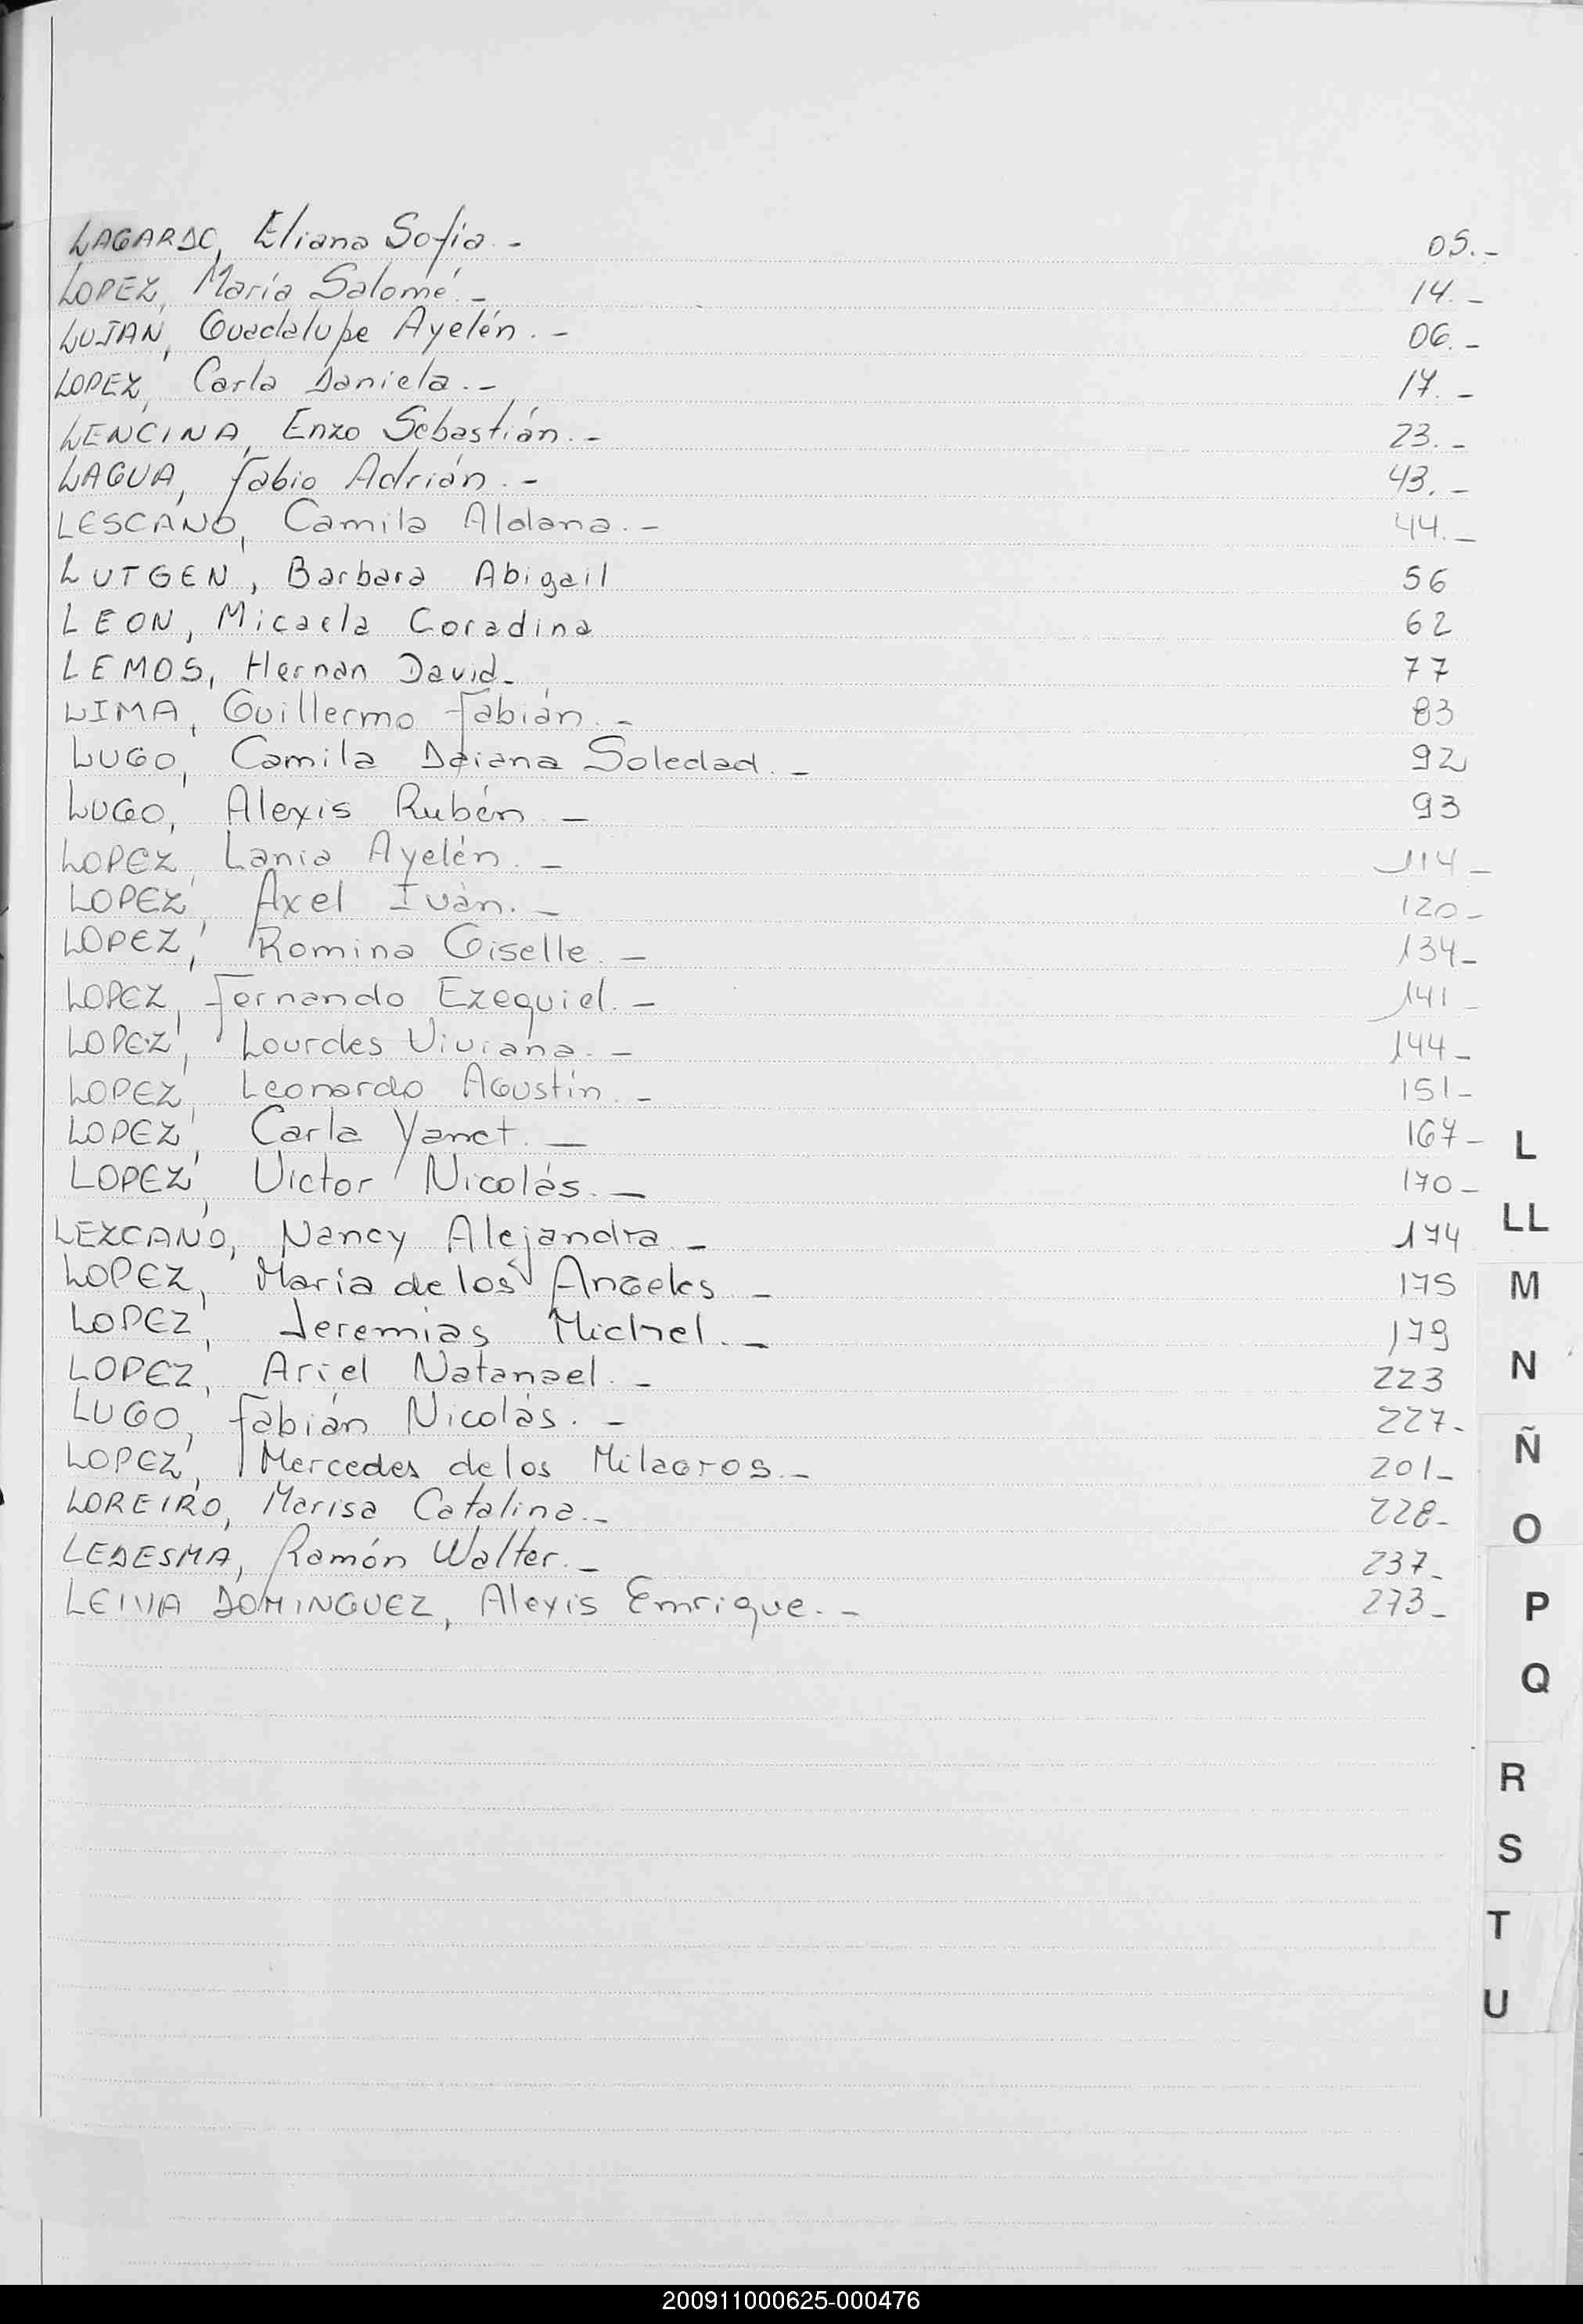 LAGARDE, Eliana Sofía.- 05.-
LOPEZ, María Salomé.- 14.-
LUJAN, Guadalupe Ayelén.- 06.-
LOPEZ, Carla Daniela.- 17.-
LENCINA, Enzo Sebastián.- 23.-
LAGUA, Fabio Adrián.- 43.-
LESCANO, Camila Aldana.- 44.-
LUTGEN, Barbara Abigail 56
LEON, Micaela Coradina 62
LEMOS, Hernan David- 77
LIMA, Guillermo Fabián.- 83
LUGO, Camila Daiana Soledad.- 92
LUGO, Alexis Rubén.- 93
LOPEZ, Lania Ayelén.- 114-
LOPEZ, Axel Iván.- 120-
LOPEZ, Romina Giselle.- 134-
LOPEZ, Fernando Ezequiel.- 141-
LOPEZ, Lourdes Viviana.- 144-
LOPEZ, Leonardo Agustín.- 151-
LOPEZ, Carla Yanet.- 167-
LOPEZ, Victor Nicolás.- 170-
LEZCANO, Nancy Alejandra.- 174
LOPEZ, María de los Angeles.- 175
LOPEZ, Jeremías Michel.- 179
LOPEZ, Ariel Natanael.- 223
LUGO, Fabián Nicolás.- 227-
LOPEZ, Mercedes de los Milagros.- 201-
LOREIRO, Marisa Catalina.- 228-
LEDESMA, Ramón Walter.- 237-
LEIVA DOMINGUEZ, Alexis Emrique.- 273-
L
LL
M
N
Ñ
O
P
Q
R
S
T
U
200911000625-000476